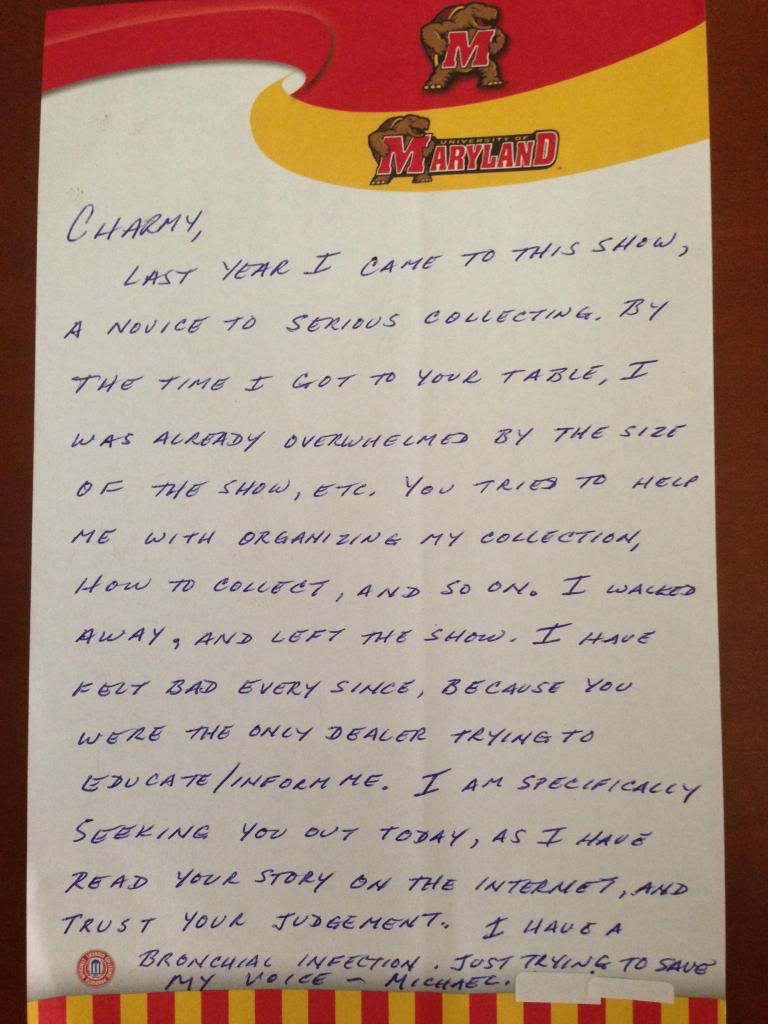 M
UNIVERSITY OF
MARYLAND
CHARMY,
LAST YEAR I CAME TO THIS SHOW,
A NOVICE TO SERIOUS COLLECTING. BY
THE TIME I GOT TO YOUR TABLE, I
WAS ALREADY OVERWHELMED BY THE SIZE
OF THE SHOW, ETC. YOU TRIED TO HELP
ME WITH ORGANIZING MY COLLECTION,
HOW TO COLLECT, AND SO ON. I WALKED
AWAY, AND LEFT THE SHOW. I HAVE
FELT BAD EVERY SINCE, BECAUSE YOU
WERE THE ONLY DEALER TRYING TO
EDUCATE/INFORM ME. I AM SPECIFICALLY
SEEKING YOU OUT TODAY, AS I HAVE
READ YOUR STORY ON THE INTERNET, AND
TRUST YOUR JUDGEMENT. I HAVE A
BRONCHIAL INFECTION. JUST TRYING TO SAVE
MY VOICE – MICHAEL.